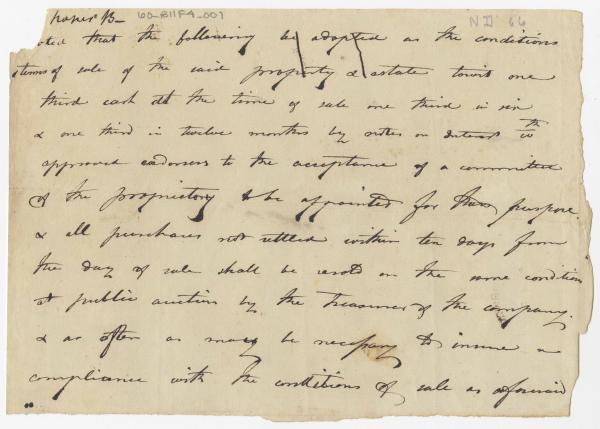 paper B— 60-B11F4-007 ND 66
oted that the following be adopted as the conditions
& terms of sale of the said property & estate towit one
third cash at the time of sale one third in six
& one third in twelve months by notes on Interest with
approved endorsers to the acceptance of a committee
of the proprietory to be appointed for that purpose.
& all purchases not settled within ten days from
the day of sale shall be resold on the same condition
at public auction by the Treasurer of the company.
& as often as may be necessary to insure a
compliance with the conditions of sale as aforesaid